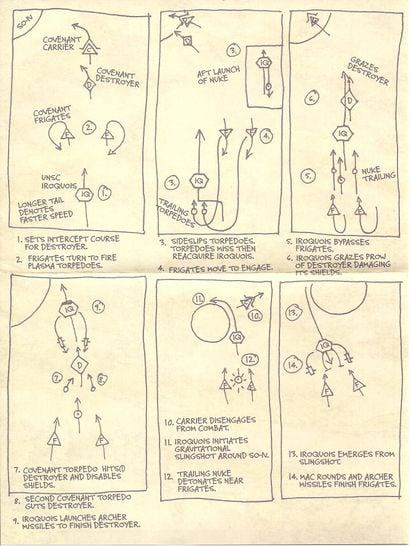 SO-IV
COVENANT
CARRIER
C
COVENANT
DESTROYER
D
COVENANT
FRIGATES
F
2.
F
UNSC
IROQUOIS
IQ
1.
LONGER TAIL
DENOTES
FASTER SPEED
1. SETS INTERCEPT COURSE
FOR DESTROYER.
2. FRIGATES TURN TO FIRE
PLASMA TORPEDOES.
3.
APT LAUNCH
OF NUKE
IQ
4.
3.
IQ
TRAILING
TORPEDOES
3. SIDESLIPS TORPEDOES.
TORPEDOES MISS THEN
REACQUIRE IROQUOIS.
4. FRIGATES MOVE TO ENGAGE.
GRAZES
DESTROYER
6.
D
IQ
5.
NUKE
TRAILING
F
F
5. IROQUOIS BYPASSES
FRIGATES.
6. IROQUOIS GRAZES PROW
OF DESTROYER DAMAGING
ITS SHIELDS.
IQ
9.
D
7.
8.
F
F
7. COVENANT TORPEDO HITS(1)
DESTROYER AND DISABLES
SHIELDS.
8. SECOND COVENANT TORPEDO
GUTS DESTROYER.
9. IROQUOIS LAUNCHES ARCHER
MISSILES TO FINISH DESTROYER.
11.
10.
IQ
12.
10. CARRIER DISENGAGES
FROM COMBAT.
11. IROQUOIS INITIATES
GRAVITATIONAL
SLINGSHOT AROUND SO-IV.
12. TRAILING NUKE
DETONATES NEAR
FRIGATES.
13.
IQ
14.
F
F
13. IROQUOIS EMERGES FROM
SLINGSHOT.
14. MAC ROUNDS AND ARCHER
MISSILES FINISH FRIGATES.